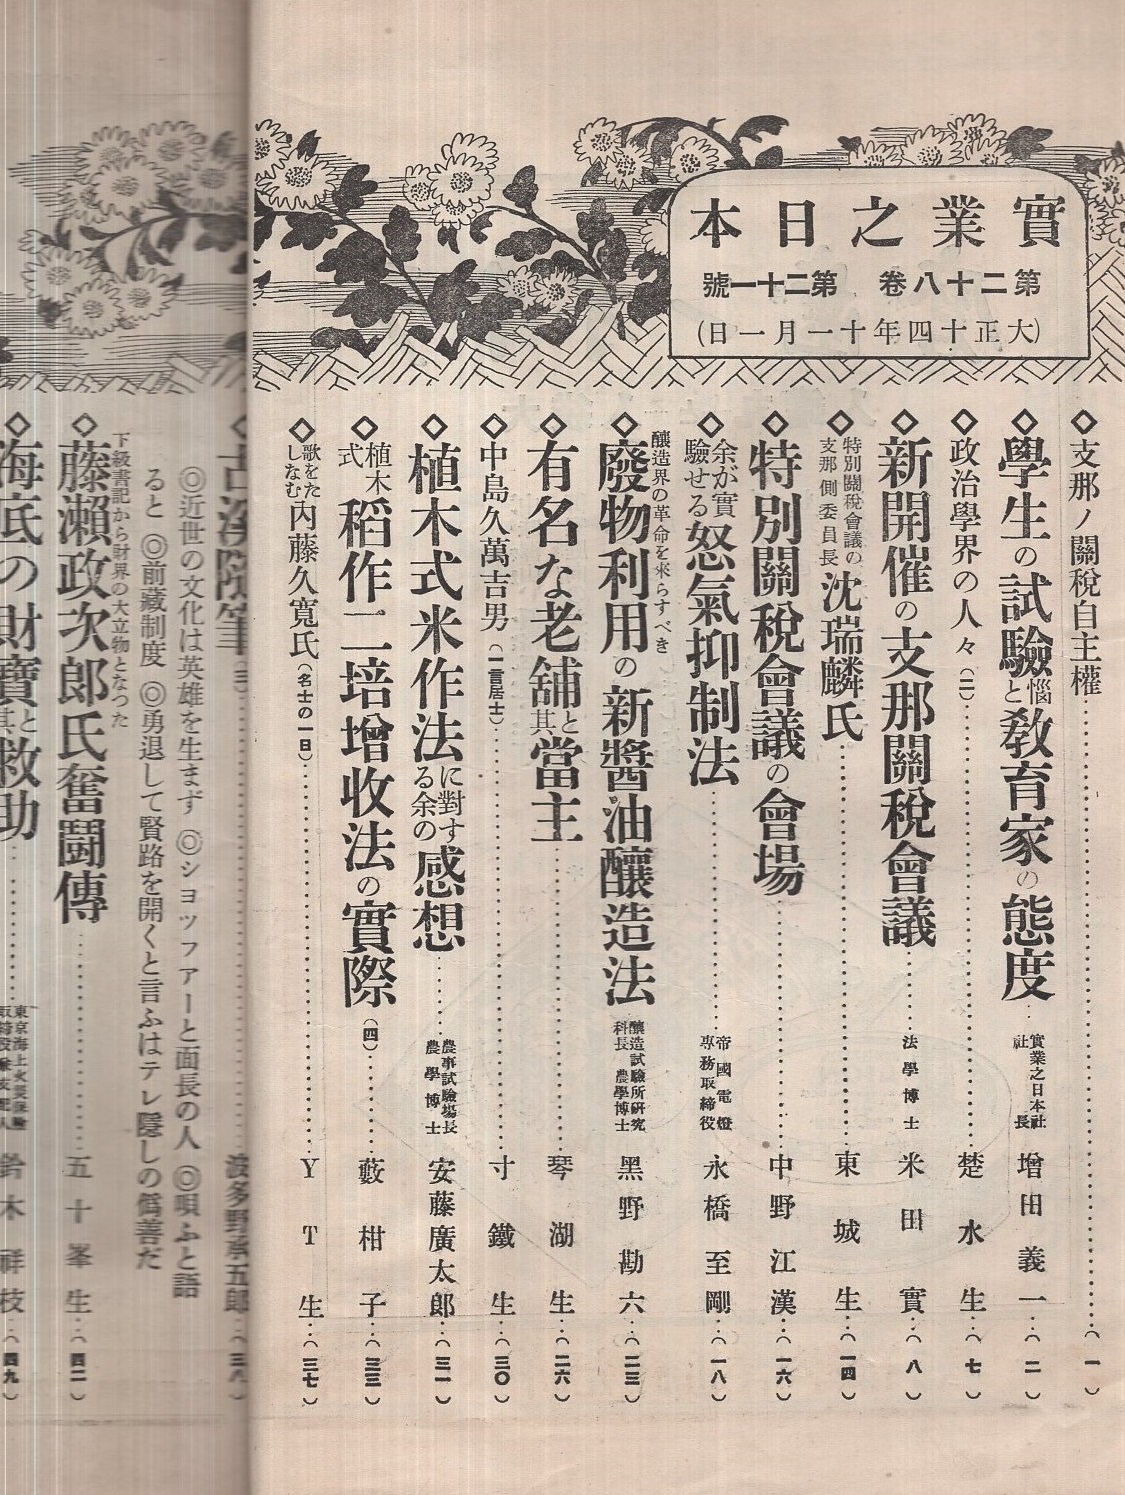 實業之日本
第二十八卷 第二十一號
(大正十四年十一月一日)
◇支那ノ關稅自主權(一)
◇學生の試驗惱と敎育家の態度 實業之日本社社長 增田義一(二)
◇政治學界の人々(二) 楚水生(七)
◇新開催の支那關稅會議 法學博士 米田實(八)
◇特別關稅會議の支那側委員長 沈瑞麟氏 東城生(一四)
◇特別關稅會議の會場 中野江漢(一六)
◇余が實驗せる怒氣抑制法 帝國電燈專務取締役 永橋至剛(一八)
釀造界の革命を來らすべき
◇廢物利用の新醬油釀造法 釀造試驗所硏究科長 農學博士 黑野勘六(二三)
◇有名な老舖と其當主 琴湖生(二六)
◇中島久萬吉男(一言居士) 寸鐵生(三〇)
◇植木式米作法に對する余の感想 農事試驗場長 農學博士 安藤廣太郎(三一)
◇植木式稻作二培增收法の實際(四) 藪柑子(三三)
◇歌をたしなむ內藤久寬氏(名士の一日) YT生(三七)
◇古溪隨筆(三) 波多野承五郎(三八)
◎近世の文化は英雄を生まず ◎ショッファーと面長の人 ◎唄ふと語
ると ◎前藏制度 ◎勇退して賢路を開くと言ふはテレ隱しの僞善だ
下級書記から財界の大立物となつた
◇藤瀨政次郎氏奮鬪傳 五十峯生(四二)
◇海底の財寶と其救助 東京海上火災保險 鈴木祥枝(四九)